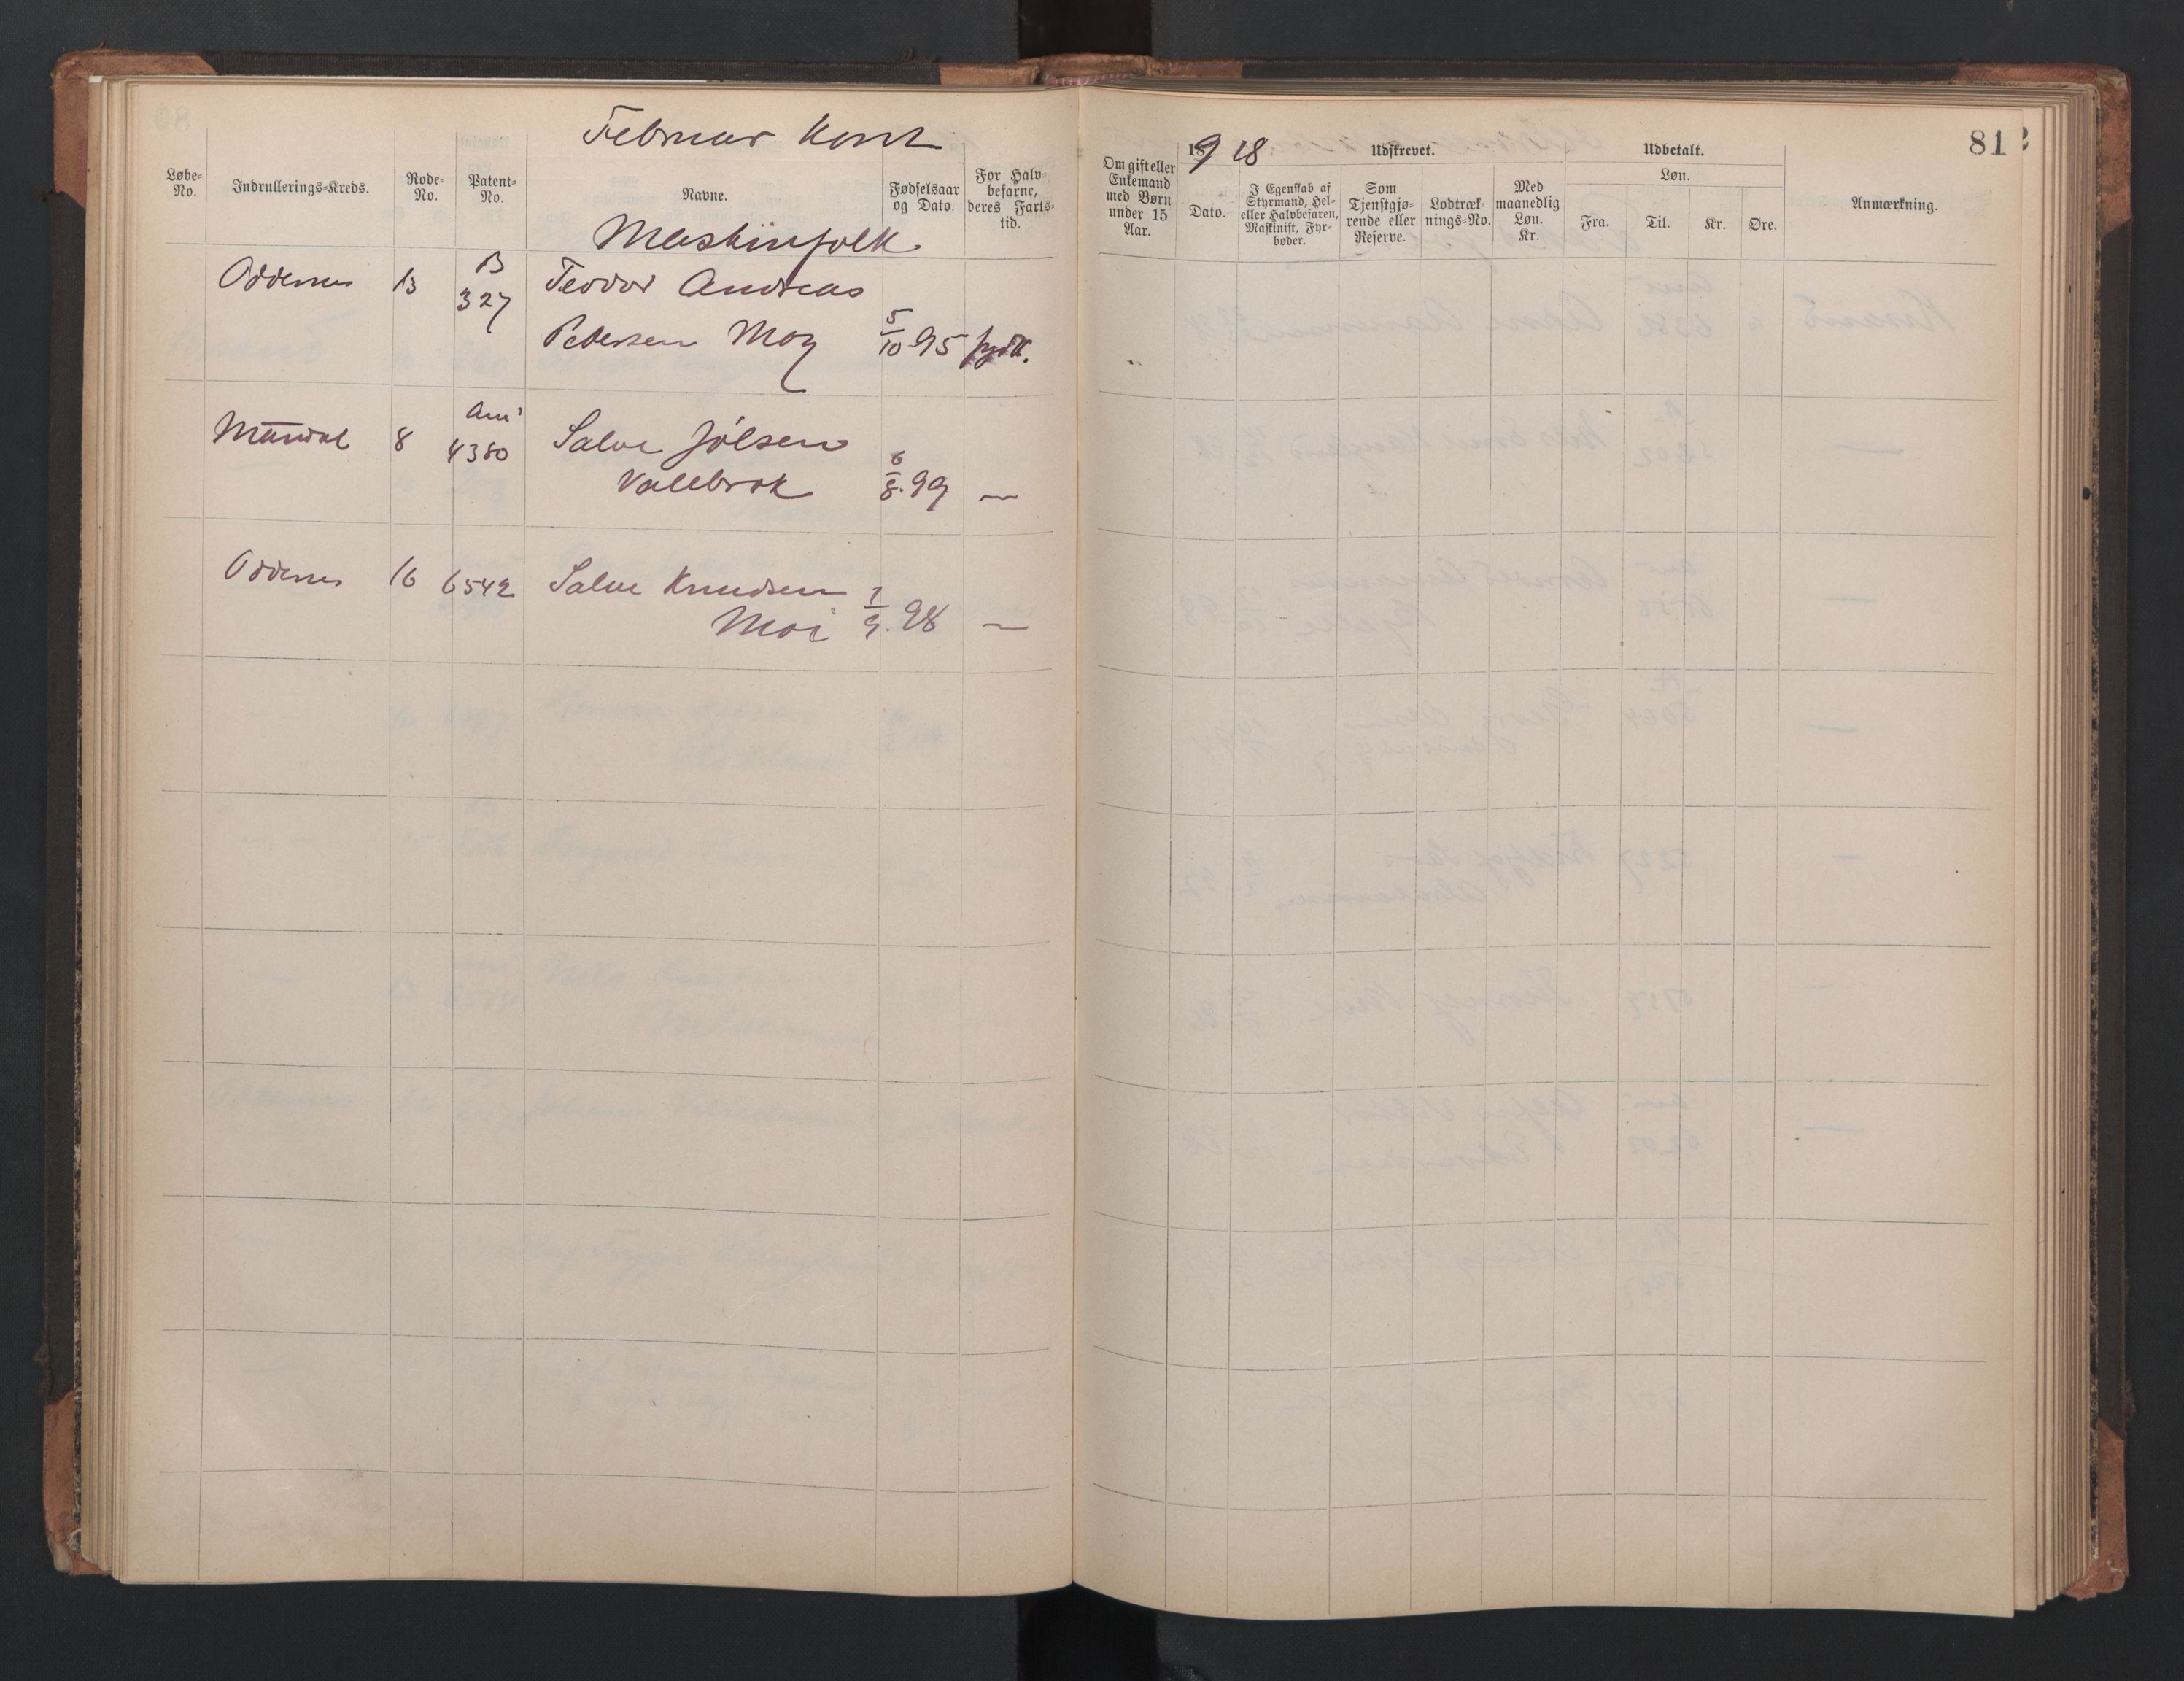 Februar Kont
Løbe-
No.
Indrullerings-Kreds.
Rode-
No.
Patent-
No.
Navne.
Fødselsaar
og Dato.
For Halv-
befarne,
deres Farts-
tid.
Maskinfolk
Oddernes 13 B
327 Teodor Andreas
Petersen Moy 5/10 95 fyrb.
Mandal 8 Am'
4380 Salve Jölsen
Vallebrok 6/8. 99 —
Oddernes 16 6542 Salve Knudsen
Moi 1/9. 98 —
81
Om gift eller
Enkemand
med Børn
under 15
Aar.
1918
Dato.
Udskrevet.
I Egenskab af
Styrmand, Hel-
eller Halvbefaren,
Maskinist, Fyr-
bøder.
Som
Tjenstgjø-
rende eller
Reserve.
Lodtræk-
nings-No.
Med
maanedlig
Løn.
Kr.
Udbetalt.
Løn.
Fra.
Til.
Kr.
Øre.
Anmærkning.